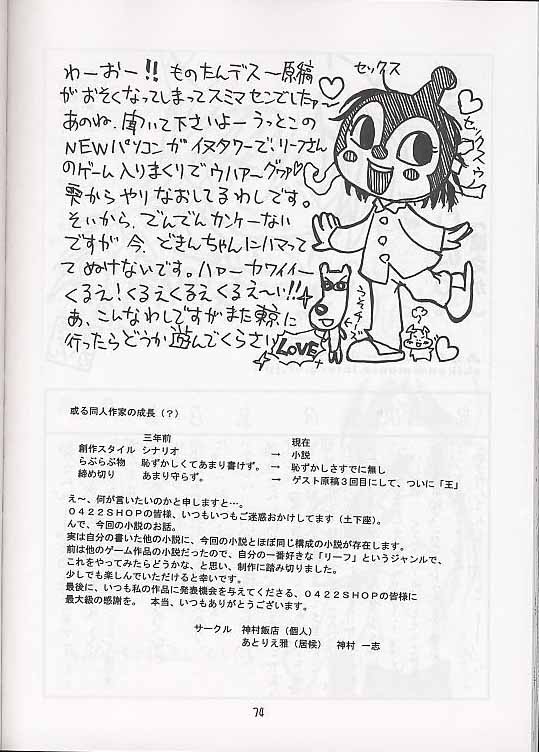 わーおー!! ものたんデス〜原稿
がおそくなってしまってスミマセンでしたァ〜
あのね、聞いて下さいよー うっとこの
NEWパソコンがイヌタワーで、リーフさん
のゲーム入りまくりでウハァ〜グゥァ♡
雫からやりなおしてるわしです。
そいから、でんでんカンケーない
ですが今、どきんちゃんにハマって
てぬけないです。ハァーカワイイー
くるえ!くるえくるえ くるえ〜い!!
あ、こんなわしですがまた東京に
行ったらどうか遊んでくらさい
セックス
セックスゥ
LOVE
或る同人作家の成長(?)
三年前 現在
創作スタイル シナリオ → 小説
らぶらぶ物 恥ずかしくてあまり書けず。 → 恥ずかしさすでに無し
締め切り あまり守らず。 → ゲスト原稿3回目にして、ついに「王」
え〜、何が言いたいのかと申しますと…。
0422SHOPの皆様、いつもいつもご迷惑おかけしてます(土下座)。
んで、今回の小説のお話。
実は自分の書いた他の小説に、今回の小説とほぼ同じ構成の小説が存在します。
前は他のゲーム作品の小説だったので、自分の一番好きな「リーフ」というジャンルで、
これをやってみたらどうかな、と思い、制作に踏み切りました。
少しでも楽しんでいただけると幸いです。
最後に、いつも私の作品に発表機会を与えてくださる、0422SHOPの皆様に
最大級の感謝を。 本当、いつもありがとうございます。
サークル 神村飯店(個人)
あとりえ雅(居候) 神村 一志
74